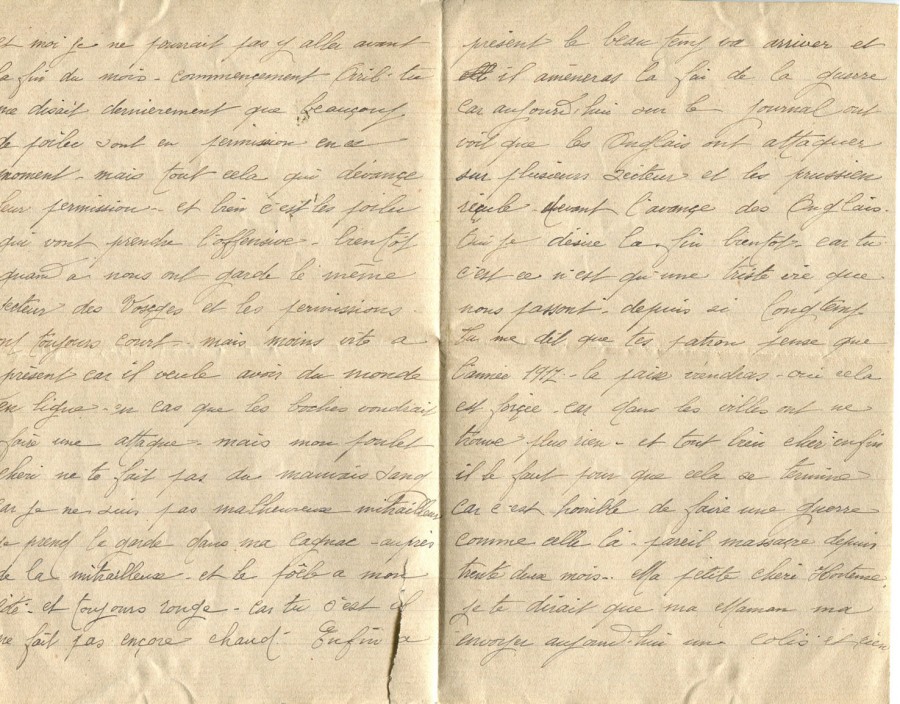 et moi je ne pourrait pas y aller avant
la fin du mois - commencement Avril - tu
me disait dernierement que beaucoup
de poilu sont en permission en ce
moment - mais tout cela qui dévance
leur permission - et bien c'est les poilu
qui vont prendre l'offensive - bientot
quand à nous ont garde le même
secteur des Vosges et les permissions -
ont toujours court - mais moins vite a
présent car il veule avoir du monde
en ligne - en cas que les boches voudrait
faire une attaque - mais mon poulet
cheri ne te fait pas du mauvais sang
car je ne suis pas malheureuse mitrailleur
je prend la garde dans ma cagnac - auprès
de la mitrailleuse - et le pôele a mon
côté - et toujours rouge - car tu c'est il
ne fait pas encore chaud - Enfin a
présent le beau temp va arriver et
il améneras la fin de la guerre
car aujourd'hui sur le journal ont
voit que les Anglais ont attaquer
sur plusieur secteur et les prussien
recule - devant l'avance des Anglais.
Oui je désire la fin bientot - car tu
c'est ce n'est qu'une triste vie que
nous passont - depuis si longtemp.
Tu me dit que tes patron pense que
l'année 1917 - la paix viendras - oui cela
est forcée - car dans les villes ont ne
trouve plus rien - et tout bien cher enfin
il le faut pour que cela se termine
car c'est horrible de faire une guerre
comme celle la - pareil massacre depuis
trente deux mois - Ma petite cheri Hortense
je te dirait que ma Maman ma
envoyer aujourd'hui un colis et rien